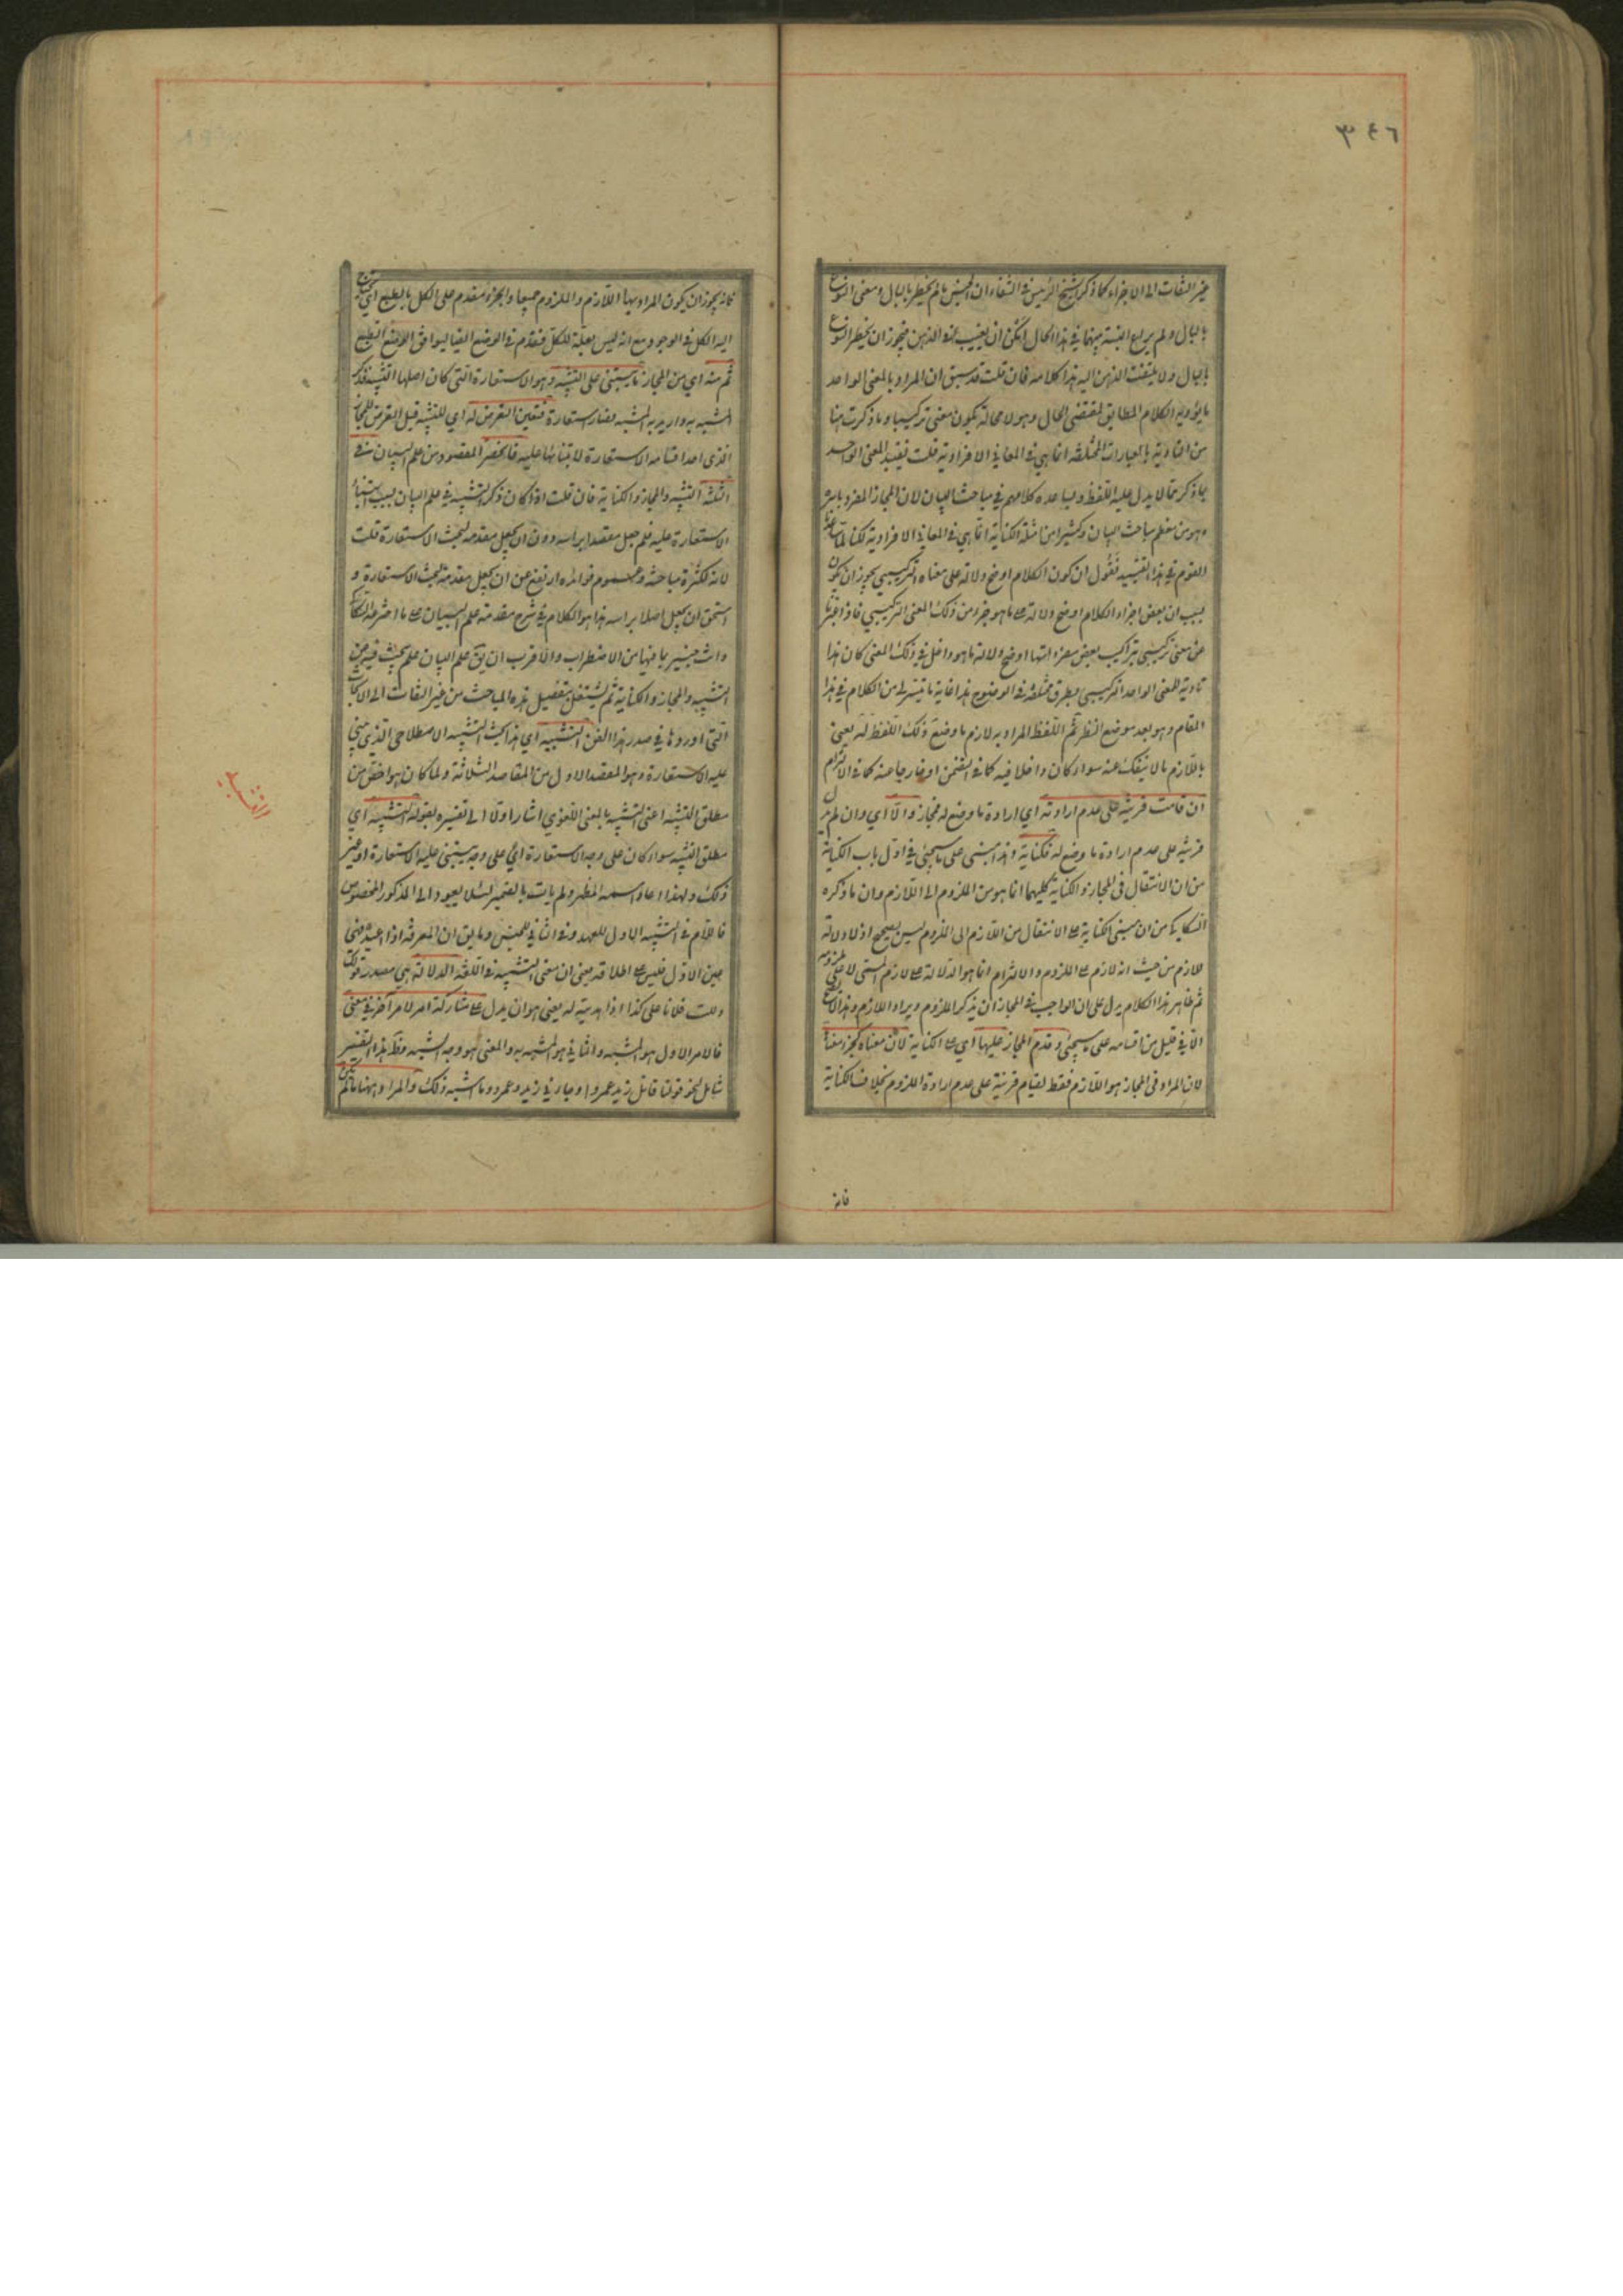 ٣٤٦
غير التفات الى الاجزاء كما ذكر الشيخ الرئيس في الشفاء ان الجنس ما لم يخطر بالبال ومعنى النوع
بالبال ولم يراع النسبة بينهما في هذا الحال امكن ان يغيب عن الذهن فيجوز ان يخطر النوع
بالبال ولا يلتفت الذهن اليه هذا كلامه فان قلت قد سبق ان المراد بالمعنى الواحد
ما يؤديه الكلام المطابق لمقتضى الحال وهو لا محالة يكون معنى تركيبيا وما ذكرت هنا
من التأدية بالعبارات المختلفة انما هي في المعاني الافرادية قلت تقييد المعنى الواحد
بما ذكر مما لا يدل عليه اللفظ ولا يساعده كلامهم في مباحث البيان لان المجاز المفرد باسره
وهو من معظم مباحث البيان وكثيرا من امثلة الكناية انما هي في المعاني الافرادية لكنا لما ساعدنا
القوم في هذا التقييد فنقول ان كون الكلام اوضح دلالة على معناه التركيبي يجوز ان يكون
بسبب ان بعض اجزاء الكلام اوضح دلالة على ما هو جزء من ذلك المعنى التركيبي فاذا عبرنا
عن معنى تركيبي بتراكيب بعض مفرداتها اوضح دلالة ما هو داخل في ذلك المعنى كان هذا
تأدية للمعنى الواحد التركيبي بطرق مختلفة في الوضوح هذا غاية ما تيسر لي من الكلام في هذا
المقام وهو بعد موضع النظر ثم اللفظ المراد به لازم ما وضع ذلك اللفظ له يعني
باللازم ما لا ينفك عنه سواء كان داخلا فيه كما في التضمن او خارجا عنه كما في الالتزام
ان قامت قرينة على عدم ارادته اي ارادة ما وضع له فمجاز والا اي وان لم يدل
قرينة على عدم ارادة ما وضع له فكناية وهذا مبني على ما سيجئ في اول باب الكناية
من ان الانتقال في المجاز والكناية كليهما انما هو من الملزوم الى اللازم وان ما ذكره
السكاكي من ان مبنى الكناية على الانتقال من اللازم الى الملزوم ليس بصحيح اذ لا دلالة
للازم من حيث انه لازم على الملزوم والالتزام انما هو الدلالة على لازم المسمى لا على ملزومه
ثم ظاهر هذا الكلام يدل على ان الواجب في المجاز ان يذكر الملزوم ويراد اللازم وهذا لا يصح
الا في قليل من اقسامه على ما سيجئ وقدم المجاز عليها اي على الكناية لان معناه كجزء معناها
لان المراد في المجاز هو اللازم فقط لقيام قرينة على عدم ارادة الملزوم بخلاف الكناية
فانه
فانه يجوز ان يكون المراد بها اللازم والملزوم جميعا والجزء مقدم على الكل بالطبع اي يحتاج
اليه الكل في الوجود مع انه ليس بعلة للكل فتقدم في الوضع ايضا ليوافق الوضع الطبع
ثم منه اي من المجاز ما يبتنى على التشبيه وهو الاستعارة التي كان اصلها التشبيه فذكر
المشبه به واريد به المشبه فصار استعارة فتعين التعرض له اي للتشبيه قبل التعرض للمجاز
الذي احد اقسامه الاستعارة لابتنائها عليه فانحصر المقصود من علم البيان في
الثلثة التشبيه والمجاز والكناية فان قلت اذا كان ذكر التشبيه في علم البيان بسبب ابتناء
الاستعارة عليه فلم جعل مقصدا برأسه دون ان يجعل مقدمة لبحث الاستعارة قلت
لانه لكثرة مباحثه وعموم فوائده ارتفع عن ان يجعل مقدمة لبحث الاستعارة و
استحق ان يجعل اصلا برأسه هذا هو الكلام في شرح مقدمة علم البيان على ما اخترعه السكاكي
وانت خبير بما فيها من الاضطراب والاقرب ان يق علم البيان علم يبحث فيه عن
التشبيه والمجاز والكناية ثم يشتغل بتفصيل هذه المباحث من غير التفات الى الابحاث
التي اوردوها في صدر هذا الفن التشبيه اي هذا بحث التشبيه الاصطلاحي الذي يبنى
عليه الاستعارة وهو المقصد الاول من المقاصد الثلاثة ولما كان هو اخص من
مطلق التشبيه اعني التشبيه بالمعنى اللغوي اشار اولا الى تفسيره بقوله التشبيه اي
مطلق التشبيه سواء كان على وجه الاستعارة او على وجه يبتنى عليه الاستعارة او غير
ذلك ولهذا اعاد اسمه المظهر ولم يأت بالضمير لئلا يعود الى المذكور المخصوص
فاللام في التشبيه الاول للعهد وفي الثاني للجنس وما يق ان المعرفة اذا اعيدت فهي
عين الاول فليس على اطلاقه يعني ان معنى التشبيه في اللغة الدلالة هي مصدر قولك
دللت فلانا على كذا اذا هديته له يعني هو ان يدل على مشاركة امر لامر آخر في معنى
فالامر الاول هو المشبه والثاني هو المشبه به والمعنى هو وجه الشبه وظ هذا التفسير
شامل لنحو قولنا قاتل زيد عمروا وجاءني زيد وعمرو وما اشبه ذلك والمراد ههنا ما لم يكن